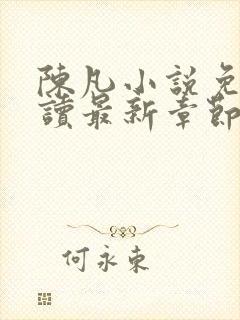 陳凡小說免
讀最新章節
何永東